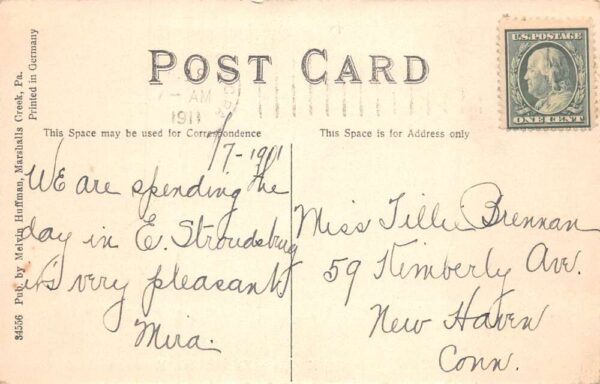 POST CARD
U.S. POSTAGE
ONE CENT
AM
1911
This Space may be used for Correspondence
This Space is for Address only
34556 Pub. by Melvin Huffman, Marshalls Creek, Pa.
Printed in Germany
We are spending the
day in E. Stroudsburg
it's very pleasant
Mira.
Miss Tillie Brennan
59 Kimberly Ave.
New Haven
Conn.